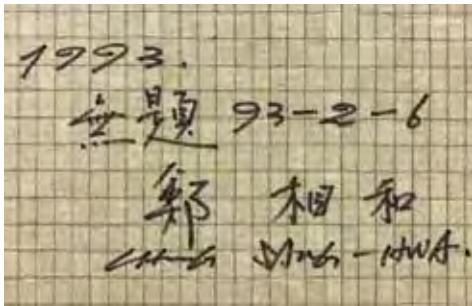 1993.
無題 93-2-6
鄭 相和
CHUNG SANG-HWA.